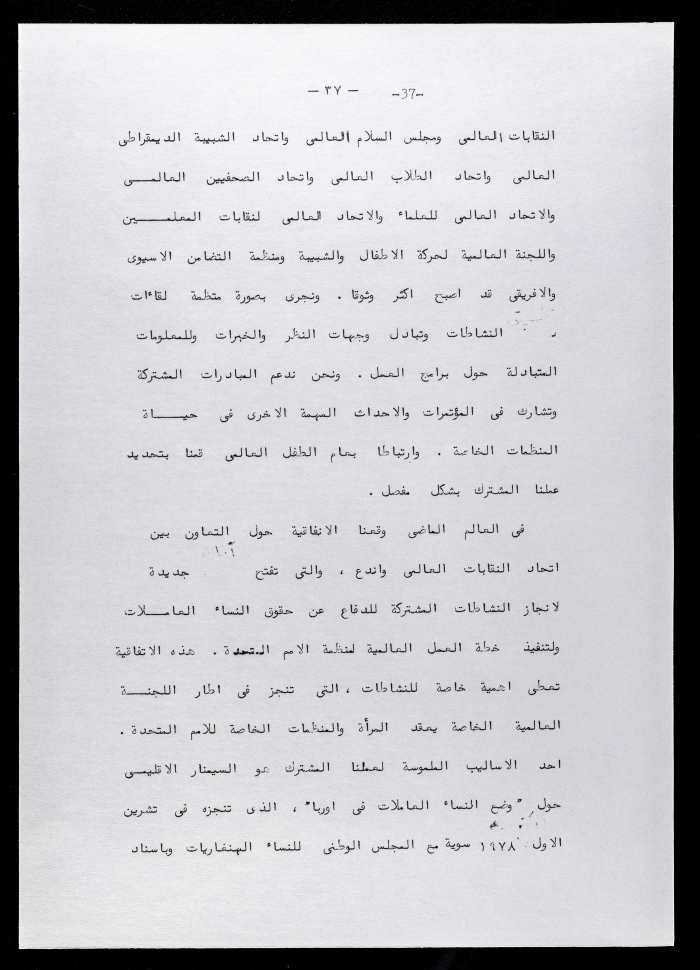 — ٣٧ — -37-
النقابات العالمى ومجلس السلام العالمى واتحاد الشبيبة الديمقراطى
العالمى واتحاد الطلاب العالمى واتحاد الصحفيين العالمــى
والاتحاد العالمى للعلماء والاتحاد العالمى لنقابات المعلمــين
واللجنة العالمية لحركة الاطفال والشبيبة ومنظمة التضامن الاسيوى
والافريقى قد اصبح اكثر وثوقا . ونجرى بصورة منتظمة لقاءات
النشاطات وتبادل وجهات النظر والخبرات وللمعلومات
المتبادلة حول برامج العمل . ونحن ندعم المبادرات المشتركة
وتشارك فى المؤتمرات والاحداث المهمة الاخرى فى حيــاة
المنظمات الخاصة . وارتباطا بعام الطفل العالمى قمنا بتحديد
عملنا المشترك بشكل مفصل .
فى العالم الماضى وقعنا الاتفاقية حول التعاون بين
اتحاد النقابات العالمى واندع ، والتى تفتح جديدة
لانجاز النشاطات المشتركة للدفاع عن حقوق النساء العامــلات
ولتنفيذ خطة العمل العالمية لمنظمة الامم المتحدة . هذه الاتفاقية
تعطى اهمية خاصة للنشاطات ، التى تنجز فى اطار اللجنــة
العالمية الخاصة يعقد المرأة والمنظمات الخاصة للامم المتحدة .
احد الاساليب الملموسة لعملنا المشترك هو السيمنار الاقليمــى
حول "وضع النساء العاملات فى اوربا" ، الذى تنجزه فى تشرين
الاول ١٩٧٨ سوية مع المجلس الوطنى للنساء الهنغاريات وباسناد